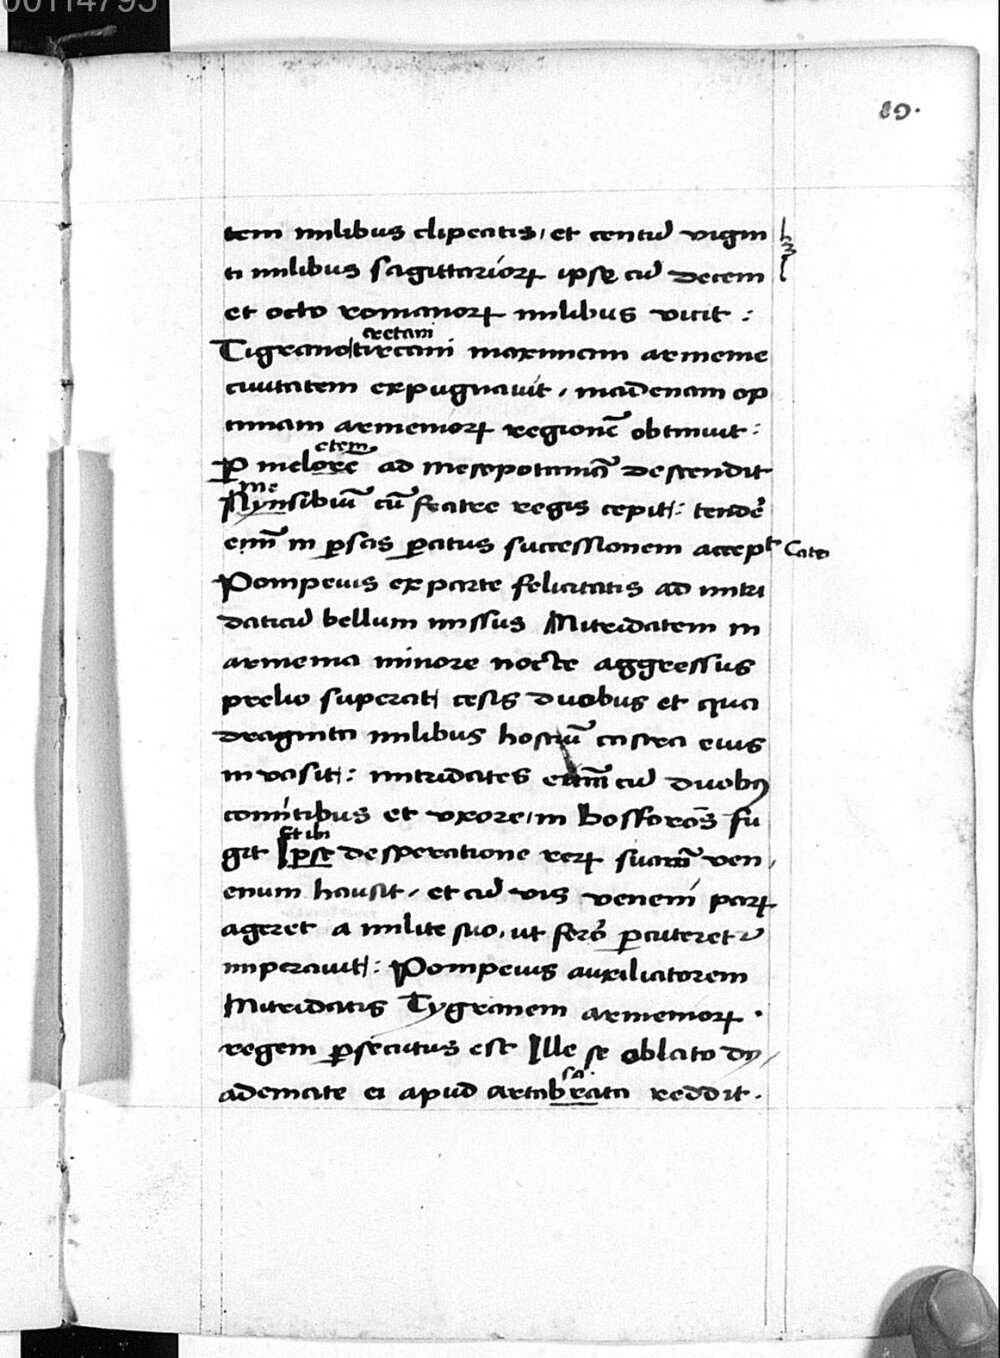 00114795
89.
tem milibus clipeatis, et centũ vigin
ti milibus sagittarioꝝ ipse cũ decem
et octo romanoꝝ milibus vicit :
cretam
Tigranotircani maximam armenie
civitatem expugnavit, madenam op
timam armenioꝝ regionẽ obtinuit :
etem
P melorẽ ad mesopotamiã descendit
me
Nynsibiũ cũ fratre regis cepit : tendẽ
enim in ꝑsas ꝑatus successionem accepit
Pompeius ex parte felicitatis ad mitri
daticũ bellum missus Mitridatem in
armenia minore nocte aggressus
prelio superat, cesis duobus et qua
draginta milibus hostiũ castra eius
invasit : mitridates etiam cũ duobꝰ
comitibus et uxore, in bosforõs fu
Et ibi
git Ipse desperatione reꝝ suarũ ven
enum hausit, et cũ vis veneni parꝝ
ageret a milite suo, ut ferõ ꝑcuteret
imperavit : Pompeius auxiliatorem
Mitridatis Tygranem armenioꝝ .
regem ꝑsecutus est Ille se oblato dy
sa.
ademate ei apud artabrata reddit .